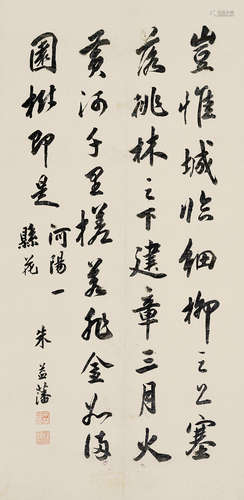 豈惟城臨細柳之上塞
落桃林之下建章三月火
黃河千里槎若非金谷滿
園樹即是
河陽一
縣花
朱益藩